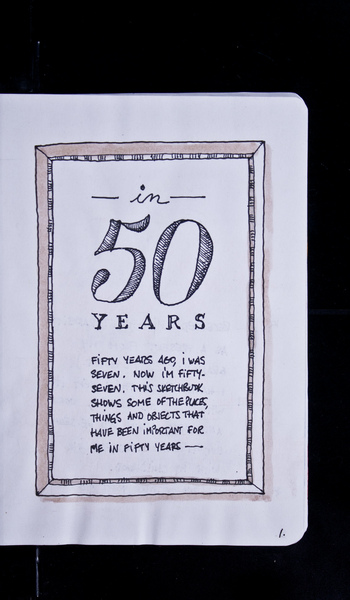 in
50
YEARS
FiFTY YEARS AGO, i WAS
SEVEN. NOW i'M FiFTY-
SEVEN. THiS SKETCHBOOK
SHOWS SOME OF THE PLACES,
THiNGS AND OBJECTS THAT
HAVE BEEN iMPORTANT FOR
ME iN FiFTY YEARS —
1.